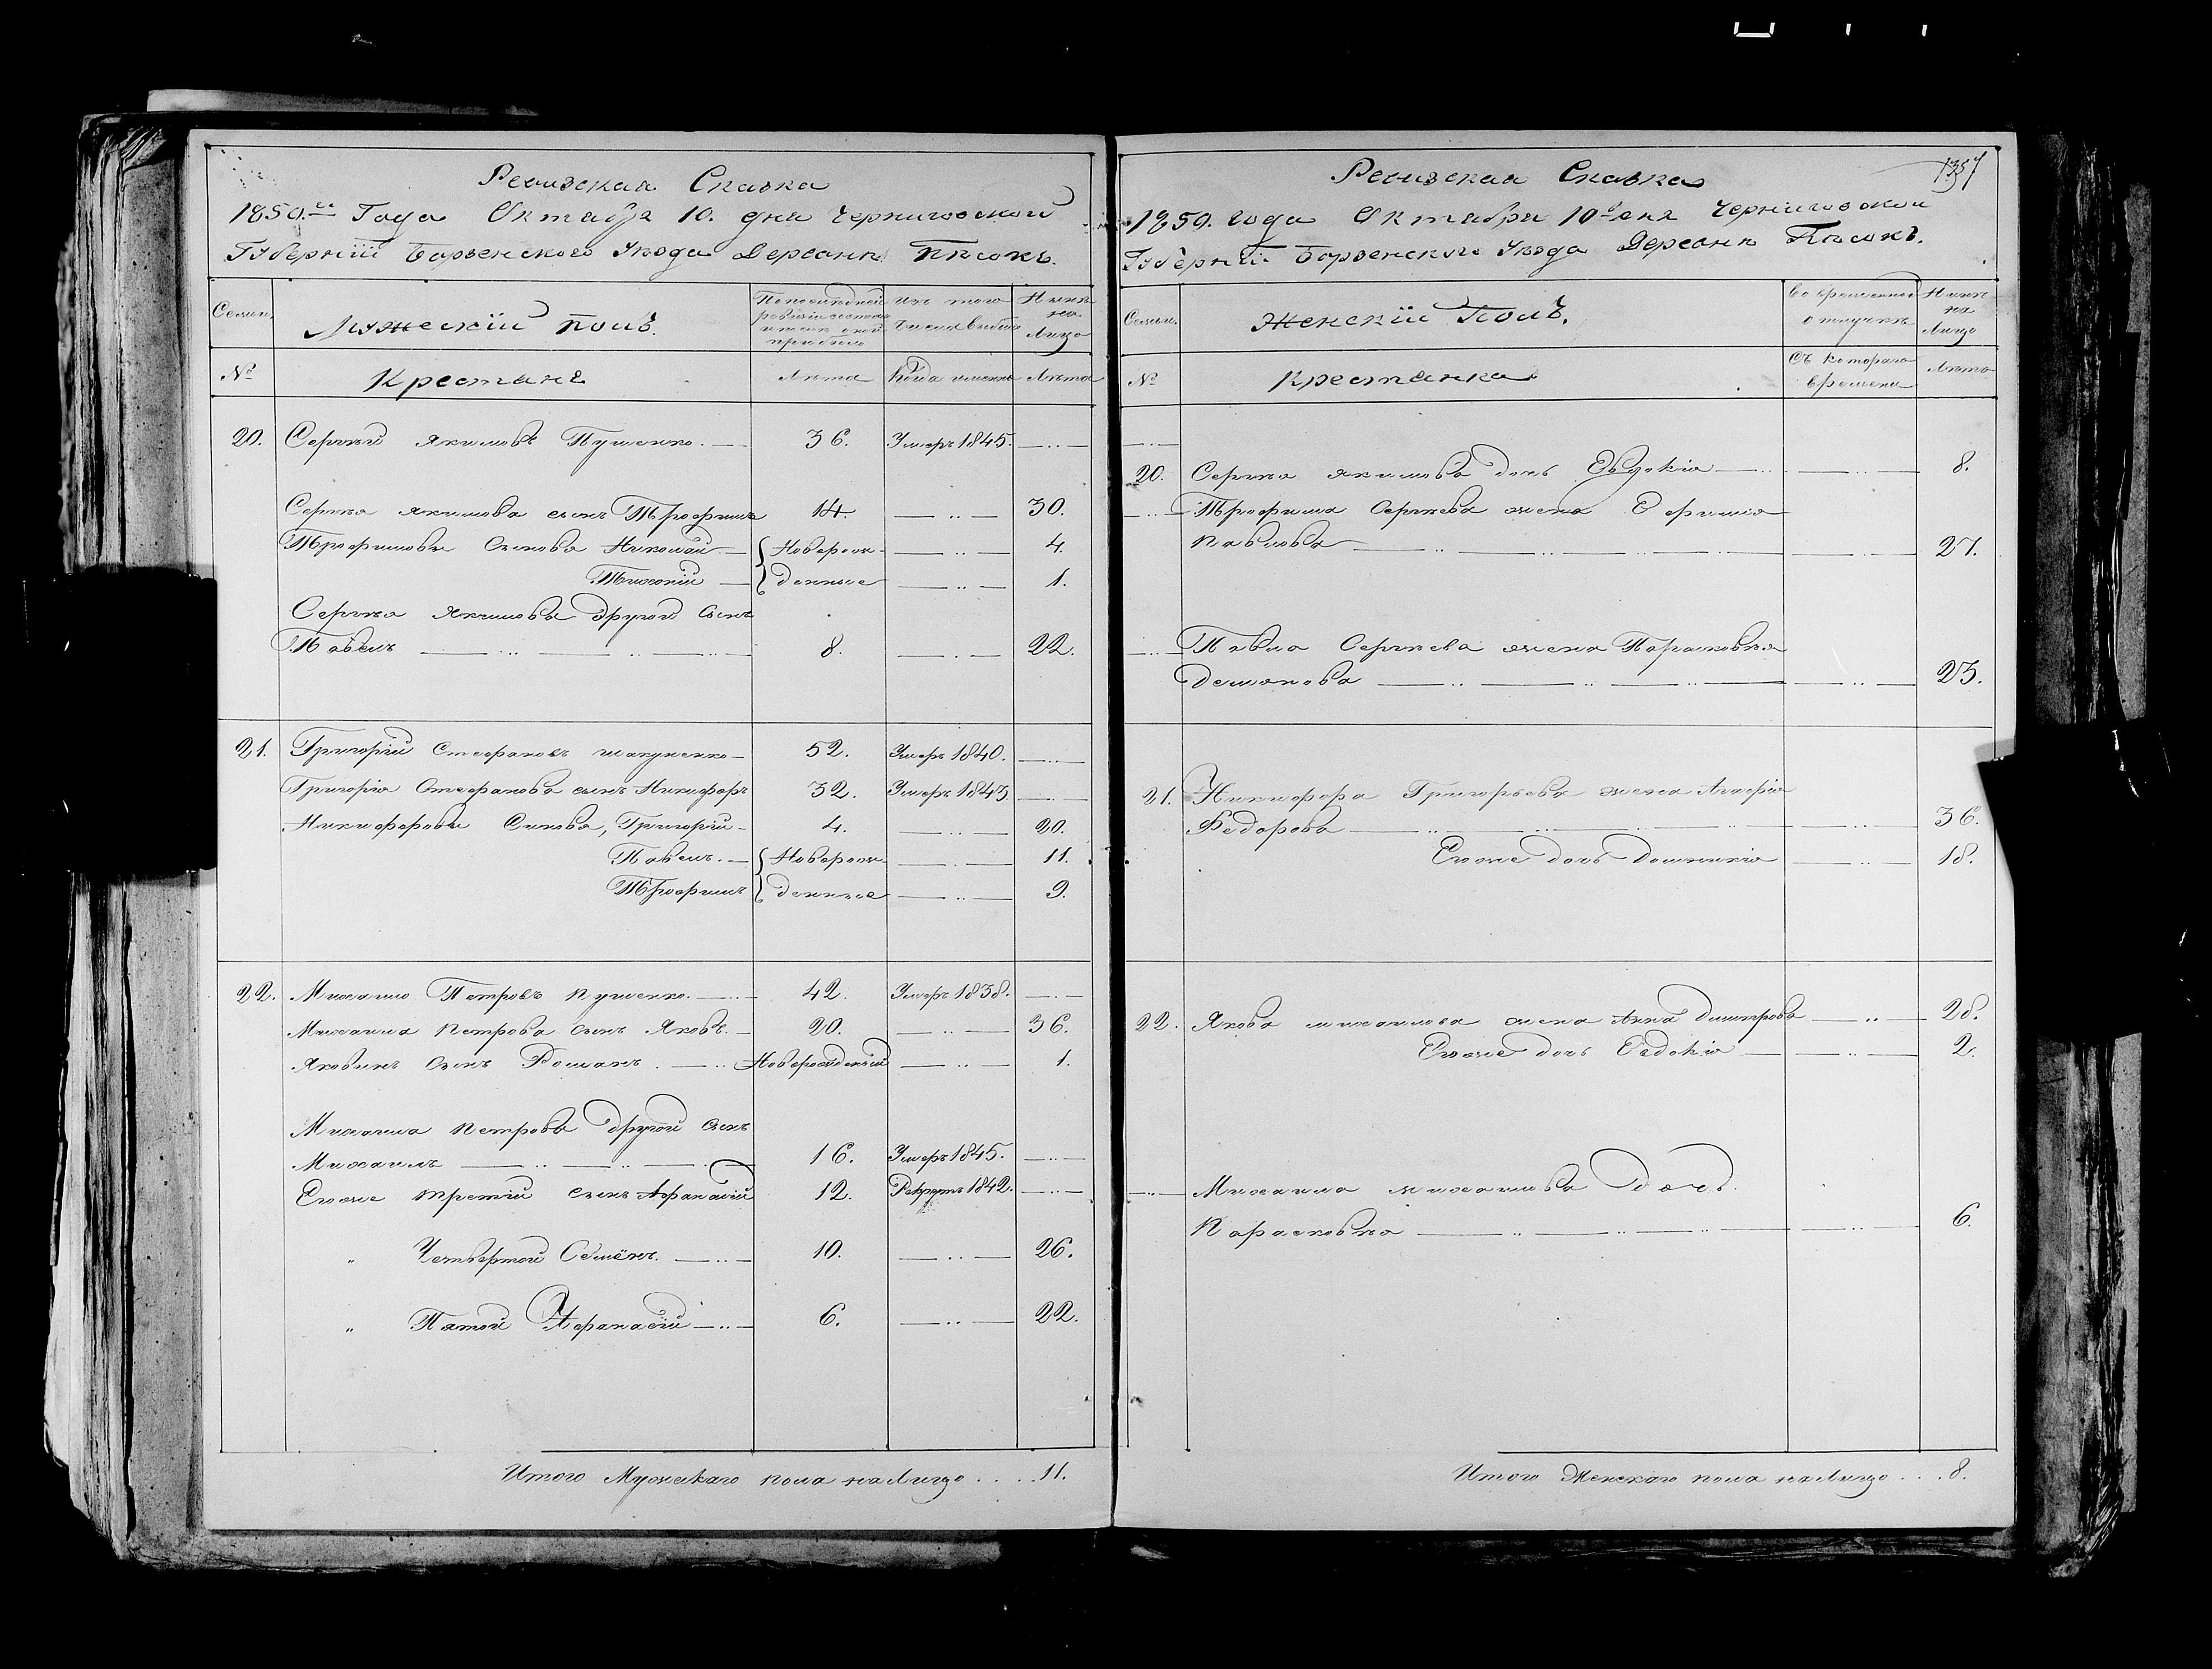 Ревизская Сказка
1850.го Года Октября 10. дня Черниговской
Губернiи Борзенского Уезда Деревни Песокъ.
Семьи.
Мужескiй полъ.
По последней ревизiи состояло и после оной прибыло
Изъ того числа выбыло
Ныне на Лицо
№
Крестяне
Лета
Когда именно
Лета
20. Сергей Якимовъ Пушенко. 36. Умеръ 1845.
Сергея Якимова сынъ Трофимъ 14. 30.
Трофимовы Сынова Николай Наворож- 4.
Тихонiй денные 1.
Сергея Якимова другой сынъ
Павелъ 8. 22.
21. Григорiй Стефановъ 52. Умеръ 1840.
Григорiя Стефанова сынъ Никифоръ 32. Умеръ 1843.
Никифоровы Синова, Григорiй 4. 20.
Павелъ. Новорож- 11.
Трофимъ денные 9.
22. Михаило Петровъ Пушенко. 42. Умеръ 1838.
Михаила Петрова сынъ Яковъ. 20. 36.
Яковинъ сынъ Романъ. Новорожденый 1.
Михаила Петрова другой сынъ
Михаилъ 16. Умеръ 1845.
Егоже третiй сынъ Афанасiй 12. Рекрутъ 1842.
" Четвертой Семёнъ. 10. 26.
" Пятой Афанасiй 6. 22.
Итого Мужескаго пола на Лицо . . . . 11.
1357
Ревизская Сказка
1850. года Октября 10 дня Черниговской
Губернiи Борзенского Уезда Деревни Песокъ.
Семьи.
Женскiй Полъ.
Во временной отлучке
Ныне на Лицо
№
Крестянка
Съ котораго времени
Лета
20. Сергея Якимова дочь Евдокiя 8.
Трофима Сергеева жена Ефимiя
Павлова 27.
Павла Сергеева жена Парасковiя
Демянова 23.
21. Никифора Григорьева жена
Федорова 36.
Егоже дочь Домникiя 18.
22. Якова Михаилова жена Анна Димитрова 28.
Егоже дочь Евдокiя 2.
Михаила Михаилова дочь
Парасковiя 6.
Итого Женскаго пола на Лицо . . . 8.